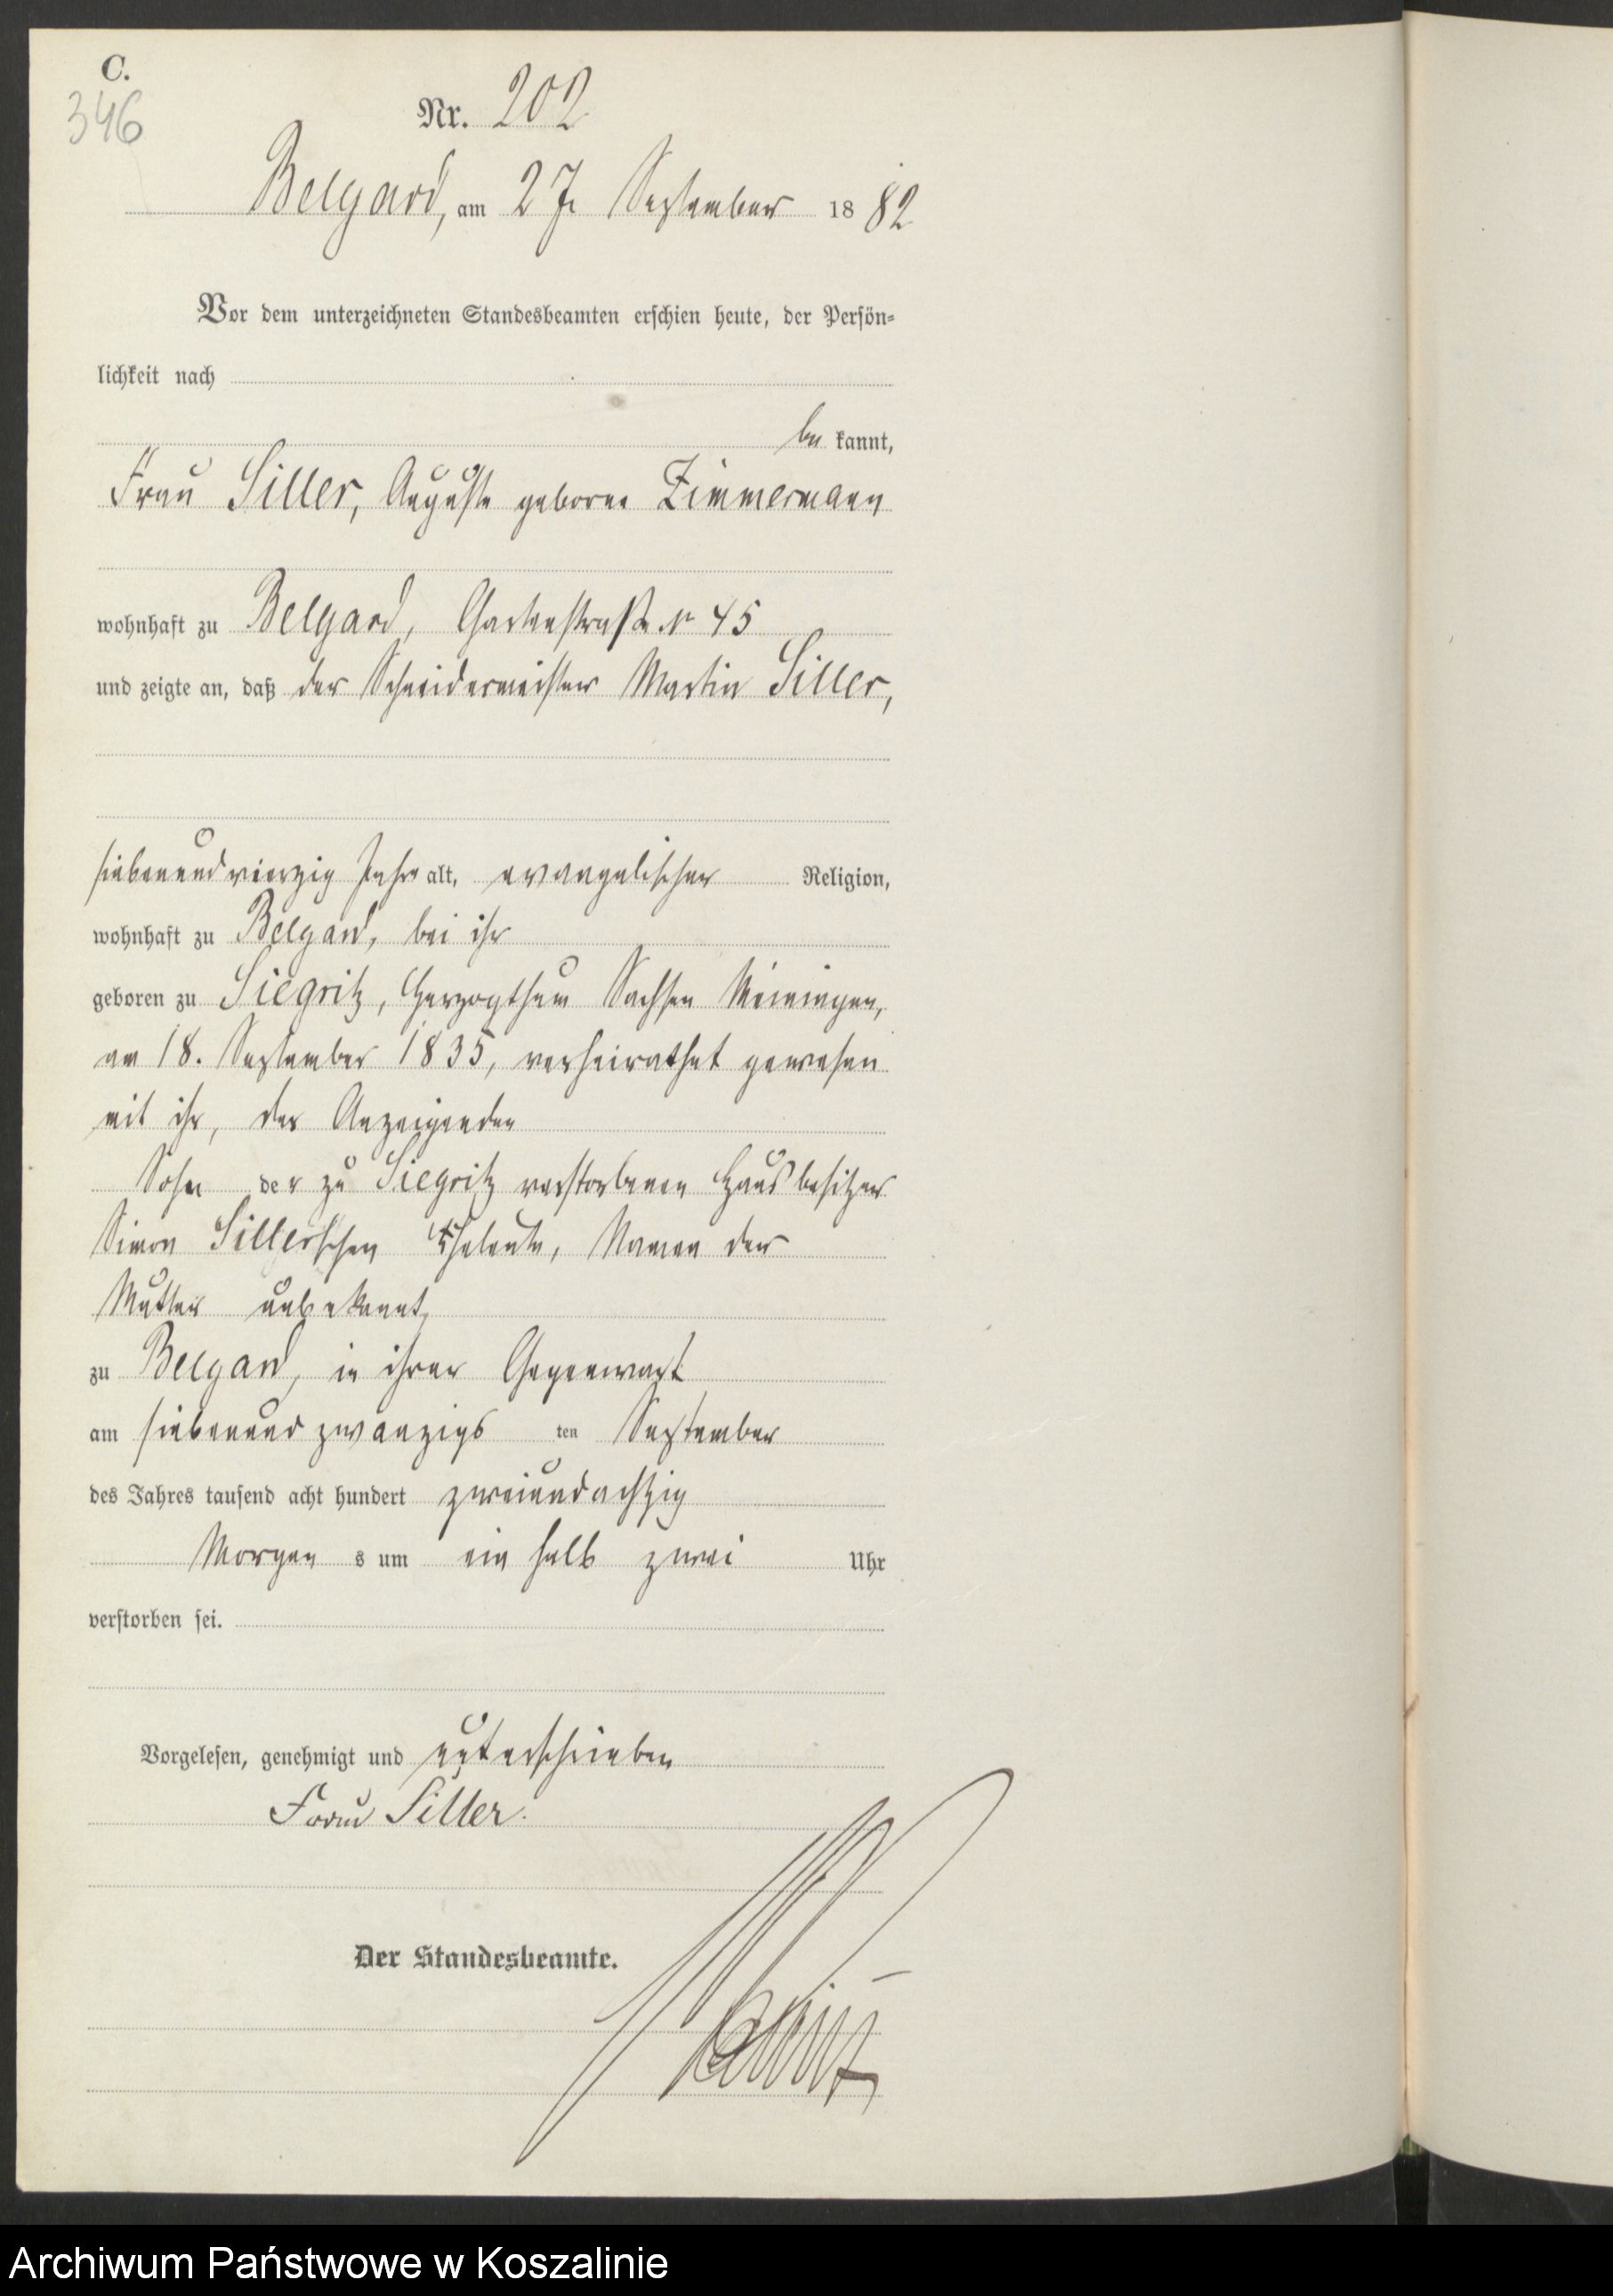 C.
346
Nr. 202
Belgard, am 27. September 1882
Vor dem unterzeichneten Standesbeamten erschien heute, der Persön-
lichkeit nach
be kannt,
Frau Siller, Auguste geborne Zimmermann
wohnhaft zu Belgard, Gartenstraße № 45
und zeigte an, daß der Schneidermeister Martin Siller,
siebenundvierzig Jahre alt, evangelischer Religion,
wohnhaft zu Belgard, bei ihr
geboren zu Siegritz, Herzogthum Sachsen Meiningen,
am 18. September 1835, verheirathet gewesen
mit ihr, der Anzeigenden
Sohn der zu Siegritz verstorbenen Hausbesitzer
Simon Siller'schen Eheleute, Namen der
Mutter unbekannt,
zu Belgard, in ihrer Gegenwart
am siebenundzwanzigs ten September
des Jahres tausend acht hundert zweiundachtzig
Morgen s um ein halb zwei Uhr
verstorben sei.
Vorgelesen, genehmigt und unterschrieben
Frau Siller.
Der Standesbeamte.
Archiwum Państwowe w Koszalinie